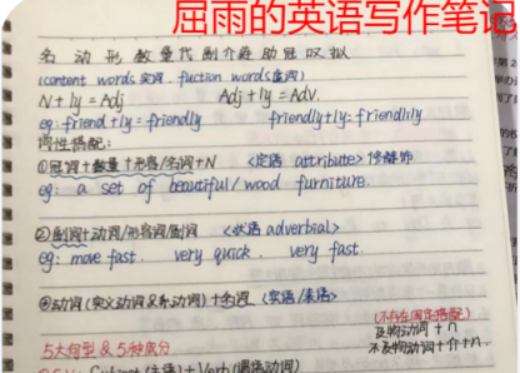 屈雨的英语写作笔记
名 动 形 数 量 代 副 介 连 助 冠 叹 拟
(content words 实词. fuction words虚词)
N + ly = Adj Adj + ly = Adv.
eg: friend + ly = friendly friendly+ly=friendlily
词性搭配:
①冠词+数量+形容/名词+N <定语 attribute> 修饰
eg: a set of beautiful/ wood furniture.
②副词+动词/形容词/副词 <状语 adverbial>
eg: move fast. very quick. very fast.
④动词(实义动词&系动词)+名词 <宾语/表语>
(不存在固定搭配)
及物动词 + n
5大句型 & 5种成分 不及物动词+介+n.
Subject (主语) + Verb (谓语动词)